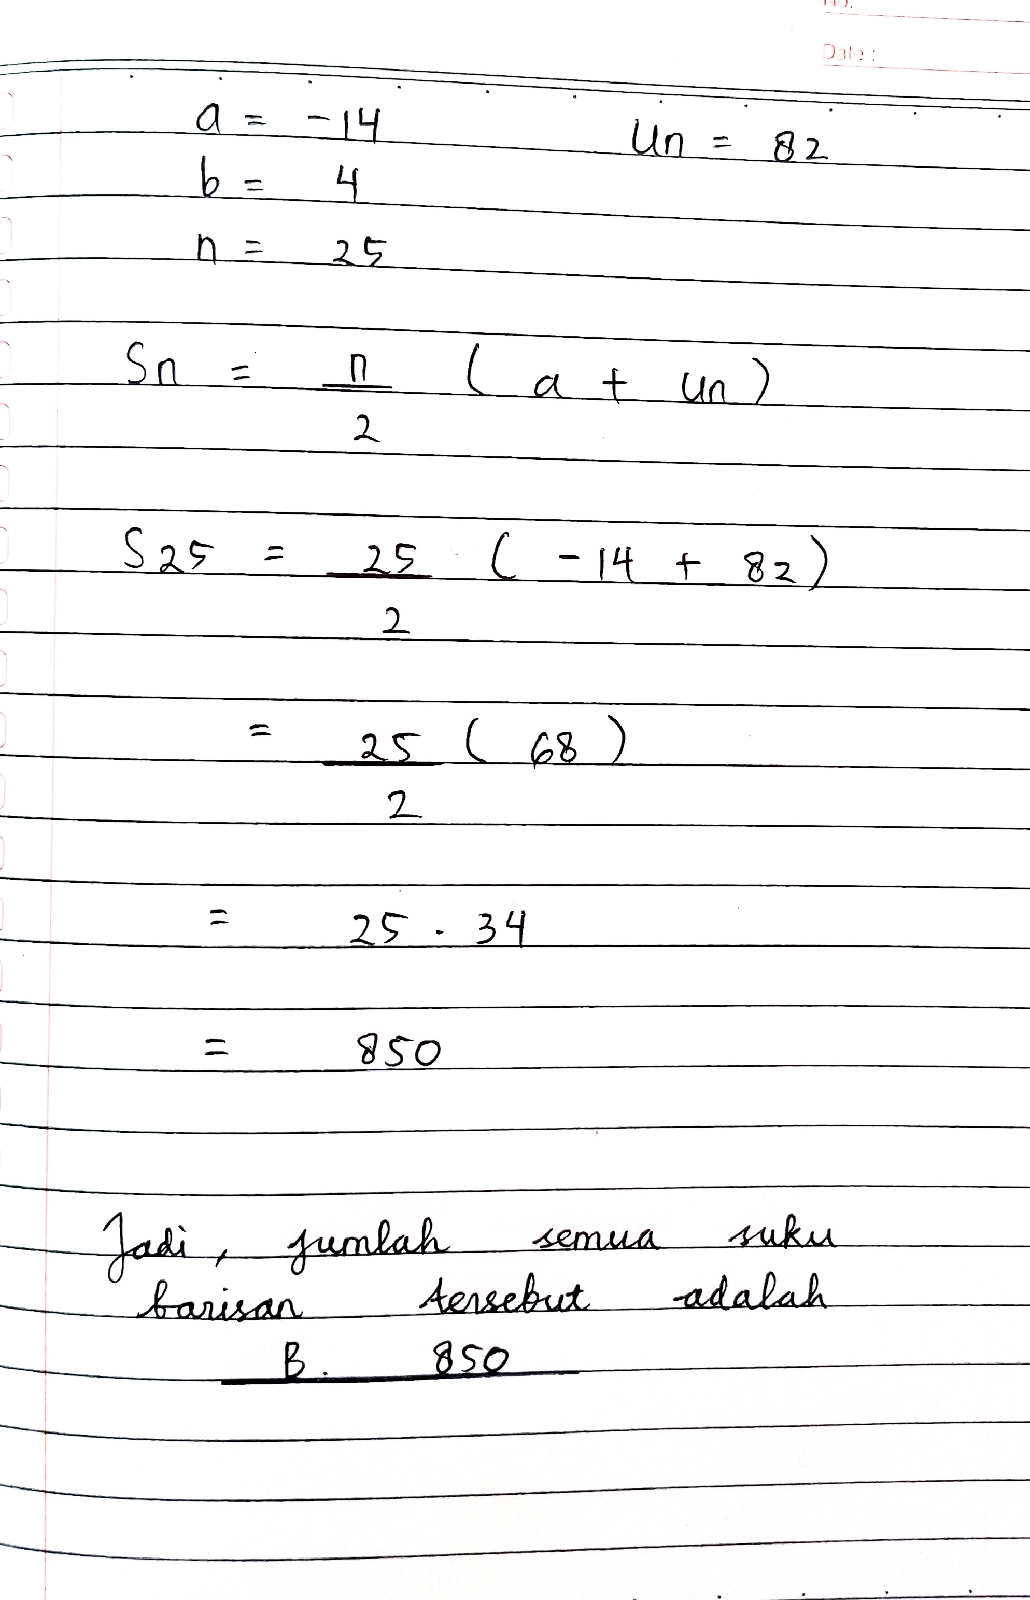 No.
Date :
a = -14 Un = 82
b = 4
n = 25
Sn = n ( a + un )
2
S25 = 25 ( -14 + 82 )
2
= 25 ( 68 )
2
= 25 . 34
= 850
Jadi, jumlah semua suku
barisan tersebut adalah
B. 850